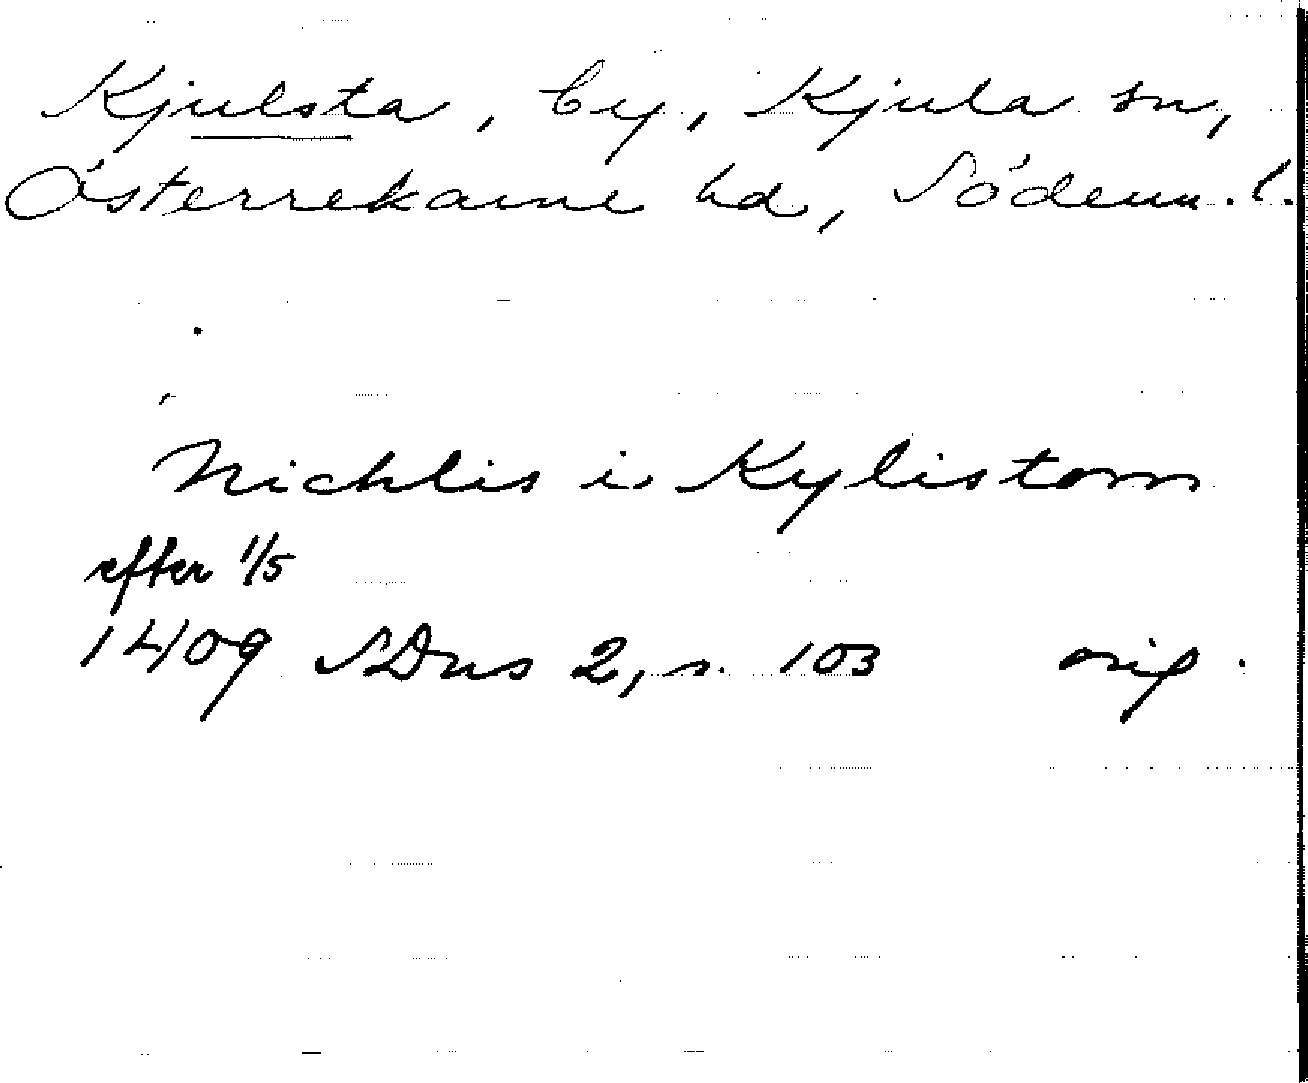 Kjulsta, by, Kjula sn,
Österrekarne hd, Söderm. l.
Nichlis i Kylistom
efter 1/5
1409 SDns 2, s. 103 orig.